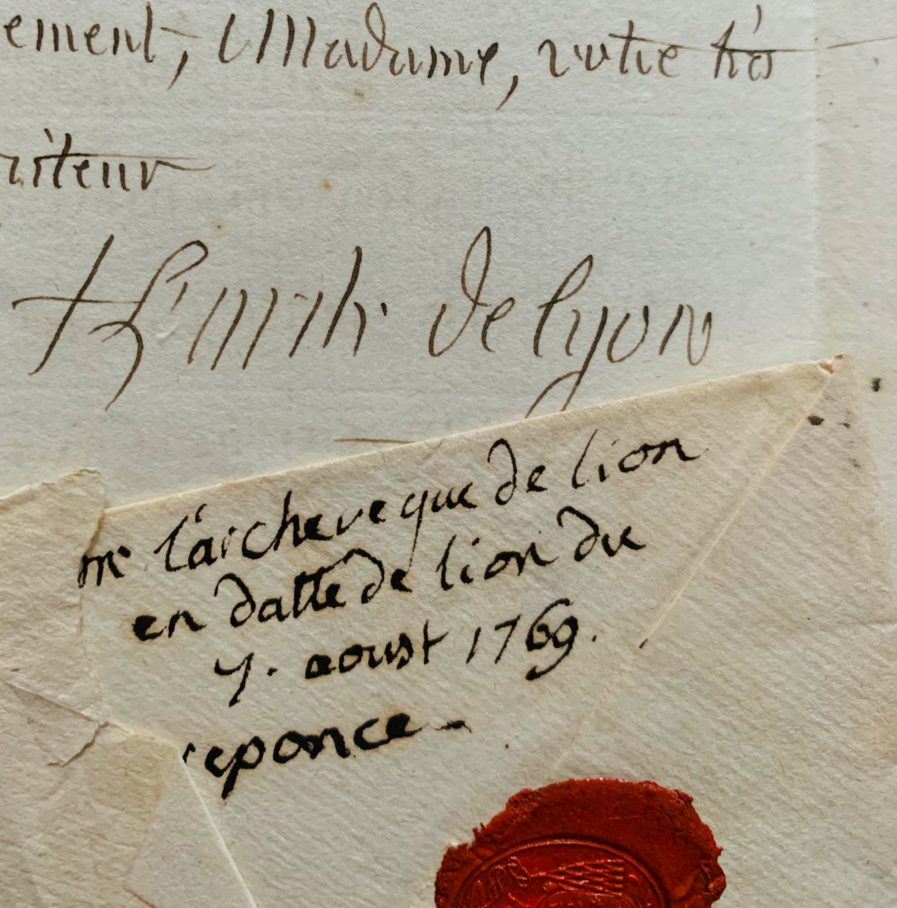 ement, Madame, votre très
riteur
de lyon
mr l'archeveque de lion
en datte de lion du
7. aoust 1769.
reponce